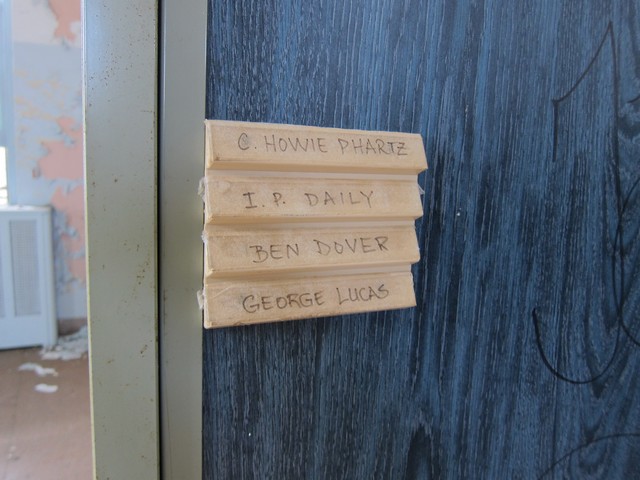 C. HOWIE PHARTZ
I. P. DAILY
BEN DOVER
GEORGE LUCAS